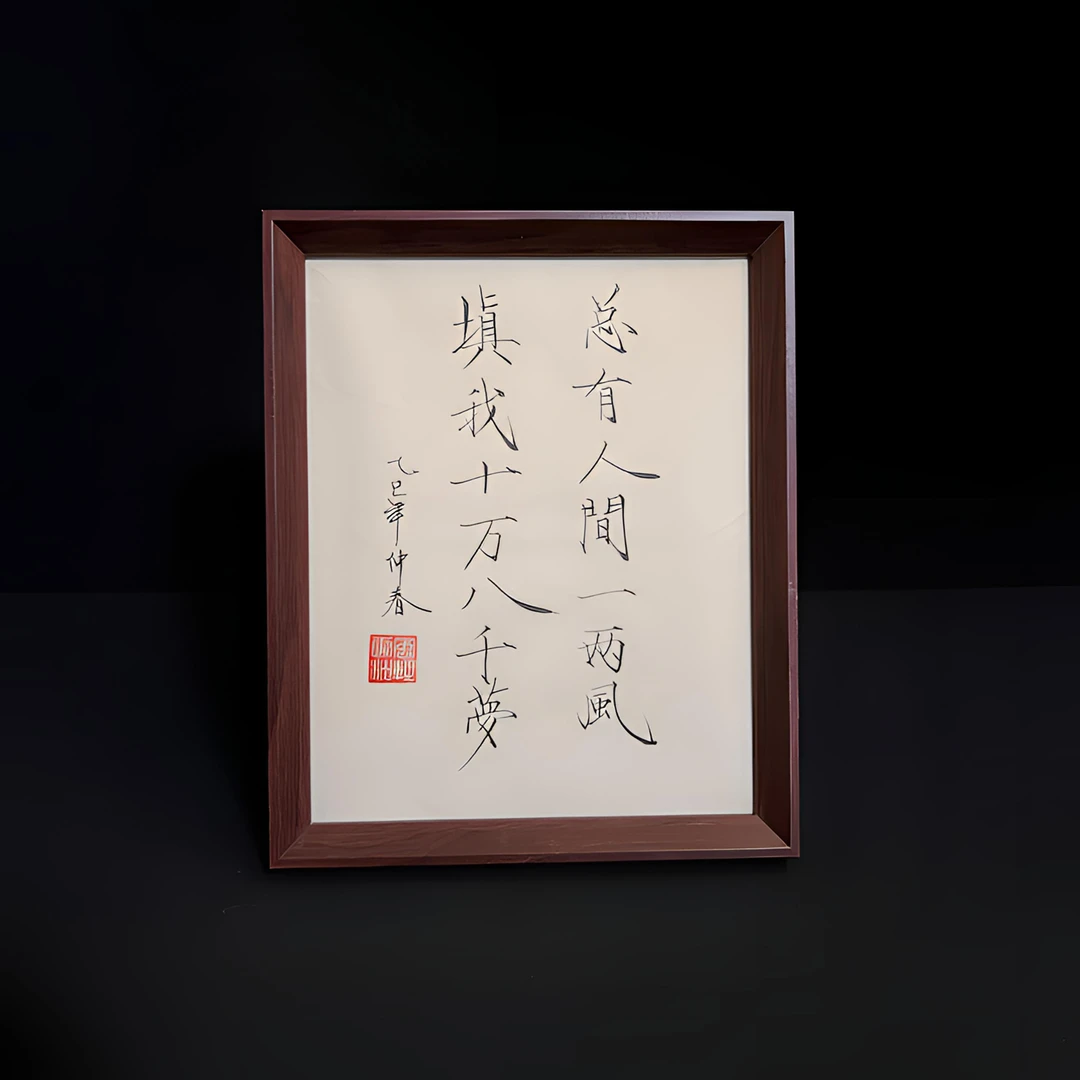 总有人間一两風
填我十万八千夢
乙巳年仲春